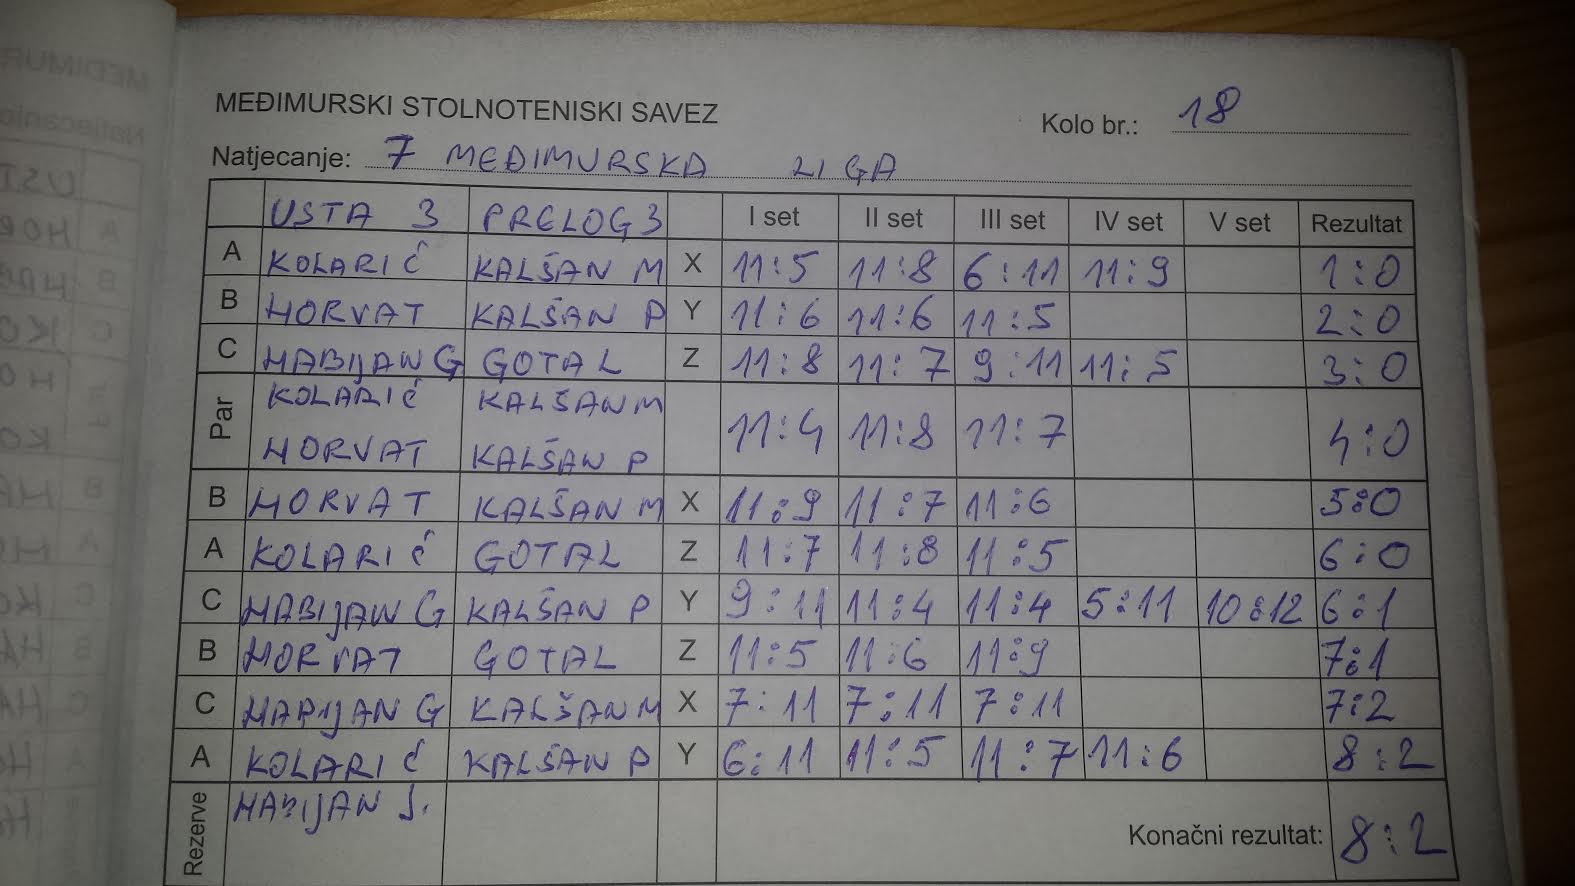 MEĐIMURSKI STOLNOTENISKI SAVEZ
Kolo br.: 18
Natjecanje: 7 MEĐIMURSKA LIGA
USTA 3 PRELOG 3 I set II set III set IV set V set Rezultat
A KOLARIĆ KALŠAN M X 11:5 11:8 6:11 11:9 1:0
B HORVAT KALŠAN P Y 11:6 11:6 11:5 2:0
C HABIJAN G GOTAL Z 11:8 11:7 9:11 11:5 3:0
Par KOLARIĆ KALŠAN M
HORVAT KALŠAN P 11:4 11:8 11:7 4:0
B HORVAT KALŠAN M X 11:9 11:7 11:6 5:0
A KOLARIĆ GOTAL Z 11:7 11:8 11:5 6:0
C HABIJAN G KALŠAN P Y 9:11 11:4 11:4 5:11 10:12 6:1
B HORVAT GOTAL Z 11:5 11:6 11:9 7:1
C HABIJAN G KALŠAN M X 7:11 7:11 7:11 7:2
A KOLARIĆ KALŠAN P Y 6:11 11:5 11:7 11:6 8:2
Rezerve HABIJAN J.
Konačni rezultat: 8:2